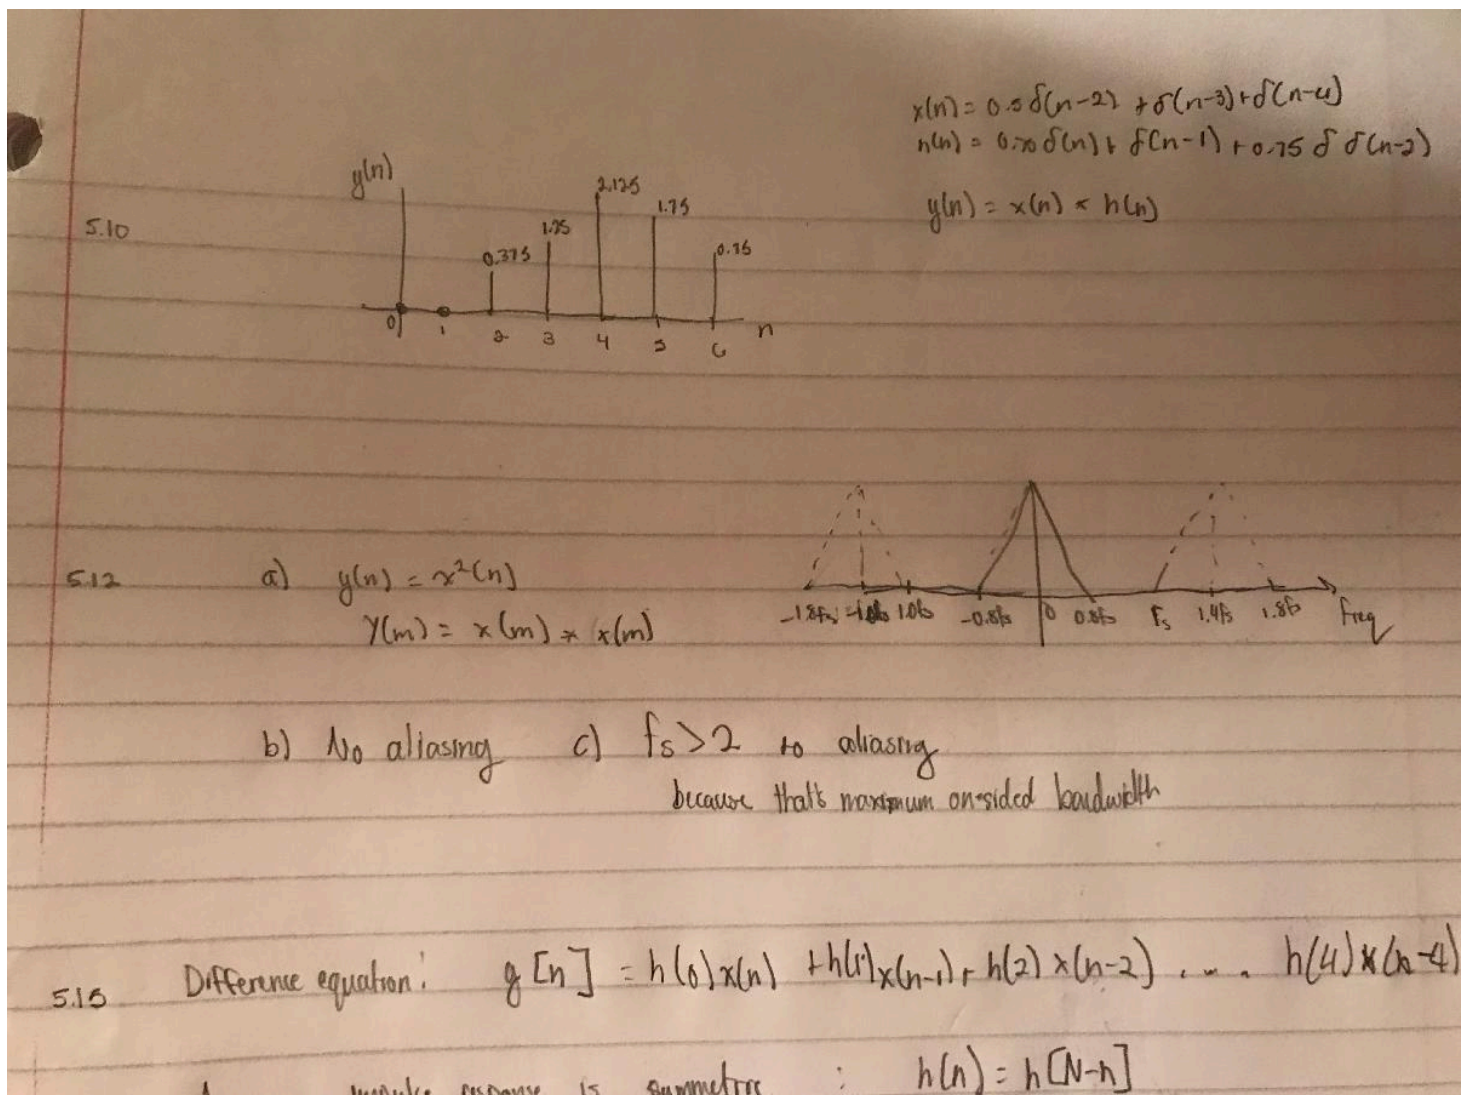 x(n) = 0.5 δ(n-2) + δ(n-3) + δ(n-4)
h(n) = 0.70 δ(n) + δ(n-1) + 0.75 δ δ(n-2)
y(n) = x(n) * h(n)
5.10
y(n)
0.375
1.25
2.125
1.75
0.75
0 1 2 3 4 5 6 n
5.12 a) y(n) = x²(n)
Y(m) = x(m) * x(m)
-1.8fs 1.0fs -0.8fs 0 0.8fs fs 1.4fs 1.8fs freq
b) No aliasing c) fs > 2 to aliasing
because that's maximum on-sided bandwidth
5.15 Difference equation: g[n] = h(0)x(n) + h(1)x(n-1) + h(2)x(n-2) . . . h(4)x(n-4)
response is symmetric : h(n) = h[N-n]